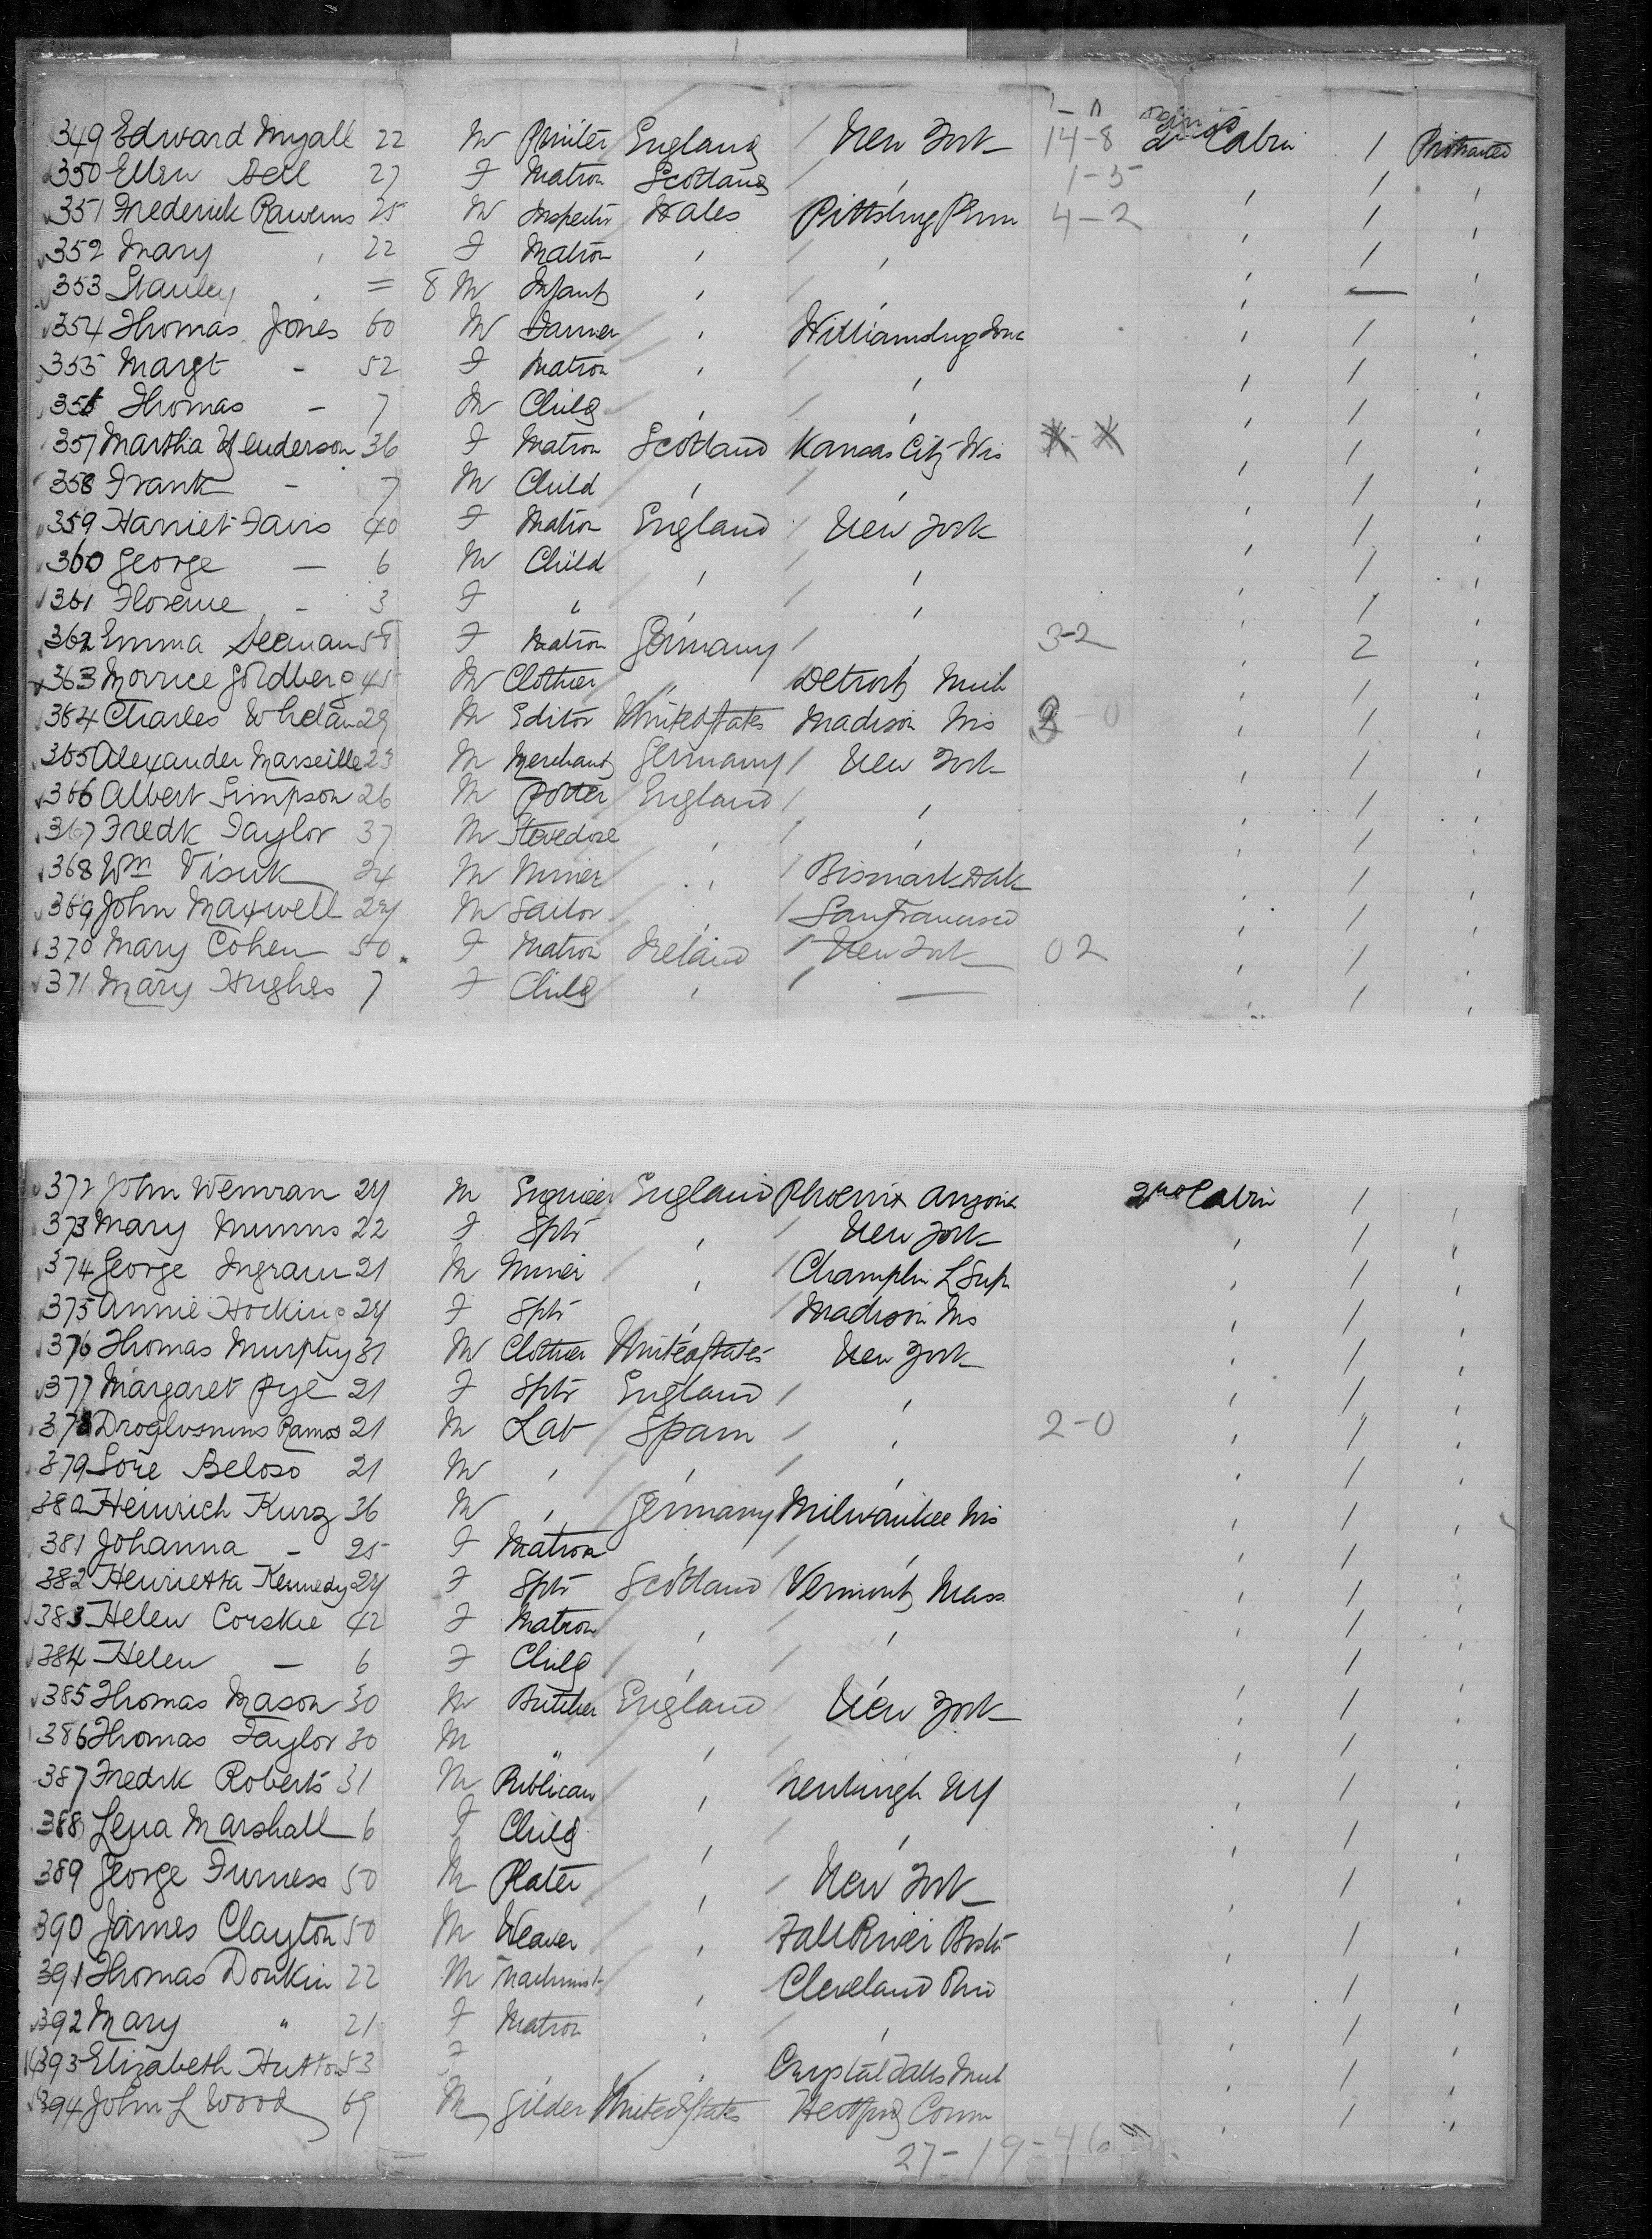 349 Edward Myall 22 M Printer England / New York 14-8 2nd Cabin / Protracted
350 Ellen Bell 27 F Matron Scotland / , 1-5 , / ,
351 Frederick Rawens 25 M Inspector Wales Pittsburg Penn 4-2 , / ,
352 Mary , 22 F Matron , / , , / ,
353 Stanley , = 8 M Infant , / , , — ,
354 Thomas Jones 60 M Farmer , Williamsburg Iowa , / ,
355 Margt - 52 F Matron , / , , / ,
356 Thomas - 7 M Child , / , , / ,
357 Martha Henderson 36 F Matron Scotland Kansas City Wis , / ,
358 Frank - 7 M Child , / , , / ,
359 Harriet Favis 40 F Matron England / New York , / ,
360 George — 6 M Child , / , , / ,
361 Florence - 3 F " , / , , / ,
362 Emma Seeman 58 F Matron Germany / , 3-2 , 2 ,
363 Morrice Goldberg 45 M Clothier " Detroit Mich , / ,
364 Charles Whelan 29 M Editor United States Madison Wis , / ,
365 Alexander Marseille 23 M Merchant Germany / New York , / ,
366 Albert Simpson 26 M Potter England / , , / ,
367 Fredk Taylor 37 M Stevedore , / , , / ,
368 Wm Visuk 24 M Miner , / Bismark Dak , / ,
369 John Maxwell 24 M Sailor , / San Francisco , / ,
370 Mary Cohen 50 F Matron Ireland / New York 02 , / ,
371 Mary Hughes 7 F Child , / — , / ,
372 John Wenwran 24 M Engineer England Phoenix Arizona 2nd Cabin / ,
373 Mary Munns 22 F Sptr , / New York , / ,
374 George Ingram 21 M Miner , / Champlin L Sup , / ,
375 Annie Hocking 24 F Sptr , / Madison Wis , / ,
376 Thomas Murphy 31 M Clothier United States New York , / ,
377 Margaret Pye 21 F Sptr England / , , / ,
378 Ramos 21 M Lab Spain / , 2-0 , / ,
379 Sore Beloso 21 M , , / , , / ,
380 Heinrich Kurz 36 M , Germany Milwaukee Wis , / ,
381 Johanna - 25 F Matron , / , , /
382 Henrietta Kennedy 24 F Sptr Scotland / Vermont Mass , / ,
383 Helen Corskie 42 F Matron , / , , / ,
384 Helen — 6 F Child , / , /
385 Thomas Mason 30 M Butcher England / New York , / ,
386 Thomas Taylor 30 M " , / , , / ,
387 Fredrk Roberts 31 M Publican , Newburgh NY , / ,
388 Lena Marshall 6 F Child , / , , / ,
389 George Furness 50 M Plater , / New York , / ,
390 James Clayton 50 M Weaver , Fall River Bostn , / ,
391 Thomas Donkin 22 M Machinist , Cleveland Ohio , / ,
392 Mary " 21 F Matron , / , , / ,
393 Elizabeth Hutton 53 F , , Crystal Falls Mich , / ,
394 John L Wood 69 M Gilder United States Hartford Conn , / ,
27-19-46